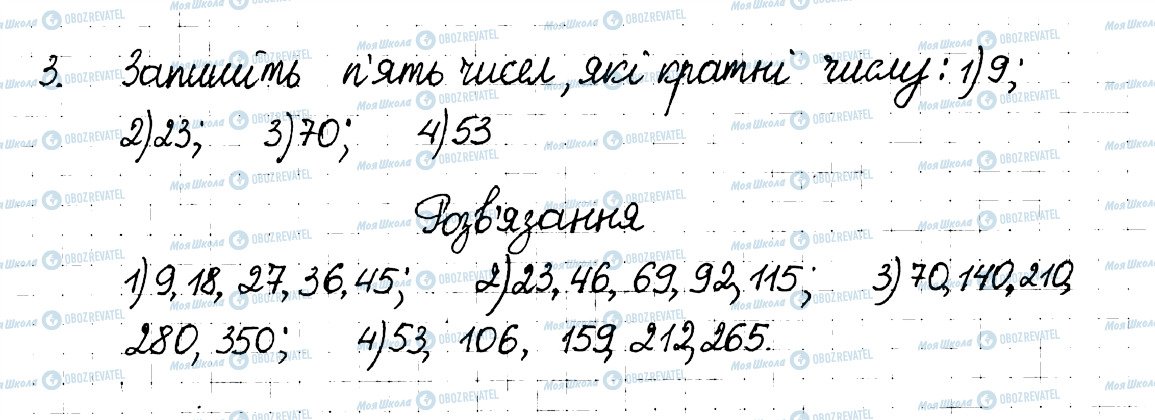 3. Запишіть п'ять чисел, які кратні числу: 1) 9;
2) 23; 3) 70; 4) 53
Розв'язання
1) 9, 18, 27, 36, 45; 2) 23, 46, 69, 92, 115; 3) 70, 140, 210,
280, 350; 4) 53, 106, 159, 212, 265.